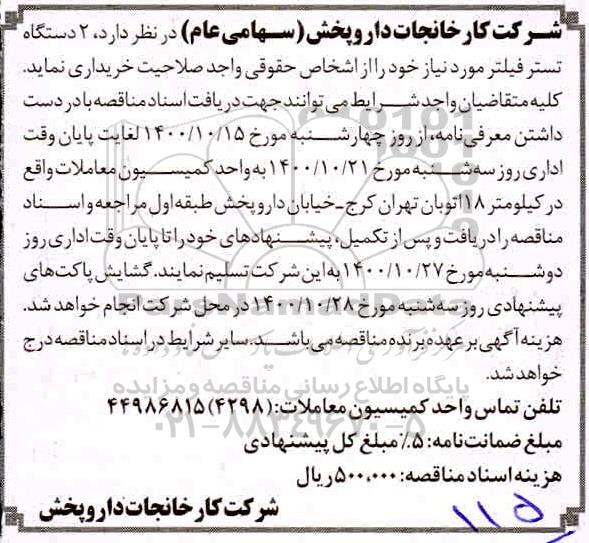 شرکت کارخانجات داروپخش (سهامی عام) در نظر دارد، ۲ دستگاه
تستر فیلتر مورد نیاز خود را از اشخاص حقوقی واجد صلاحیت خریداری نماید.
کلیه متقاضیان واجد شرایط می توانند جهت دریافت اسناد مناقصه با در دست
داشتن معرفی نامه، از روز چهارشنبه مورخ ۱۴۰۰/۱۰/۱۵ لغایت پایان وقت
اداری روز سه شنبه مورخ ۱۴۰۰/۱۰/۲۱ به واحد کمیسیون معاملات واقع
در کیلومتر ۱۸ اتوبان تهران کرج - خیابان داروپخش طبقه اول مراجعه و اسناد
مناقصه را دریافت و پس از تکمیل، پیشنهادهای خود را تا پایان وقت اداری روز
دوشنبه مورخ ۱۴۰۰/۱۰/۲۷ به این شرکت تسلیم نمایند. گشایش پاکت های
پیشنهادی روز سه شنبه مورخ ۱۴۰۰/۱۰/۲۸ در محل شرکت انجام خواهد شد.
هزینه آگهی بر عهده برنده مناقصه می باشد. سایر شرایط در اسناد مناقصه درج
خواهد شد.
پایگاه اطلاع رسانی مناقصه و مزایده
تلفن تماس واحد کمیسیون معاملات: (۴۲۹۸) ۴۴۹۸۶۸۱۵
۰۲۱-۸۸۳۴۹۶۷۰-۵
مبلغ ضمانت نامه: ۵٪ مبلغ کل پیشنهادی
هزینه اسناد مناقصه: ۵۰۰,۰۰۰ ریال
شرکت کارخانجات داروپخش